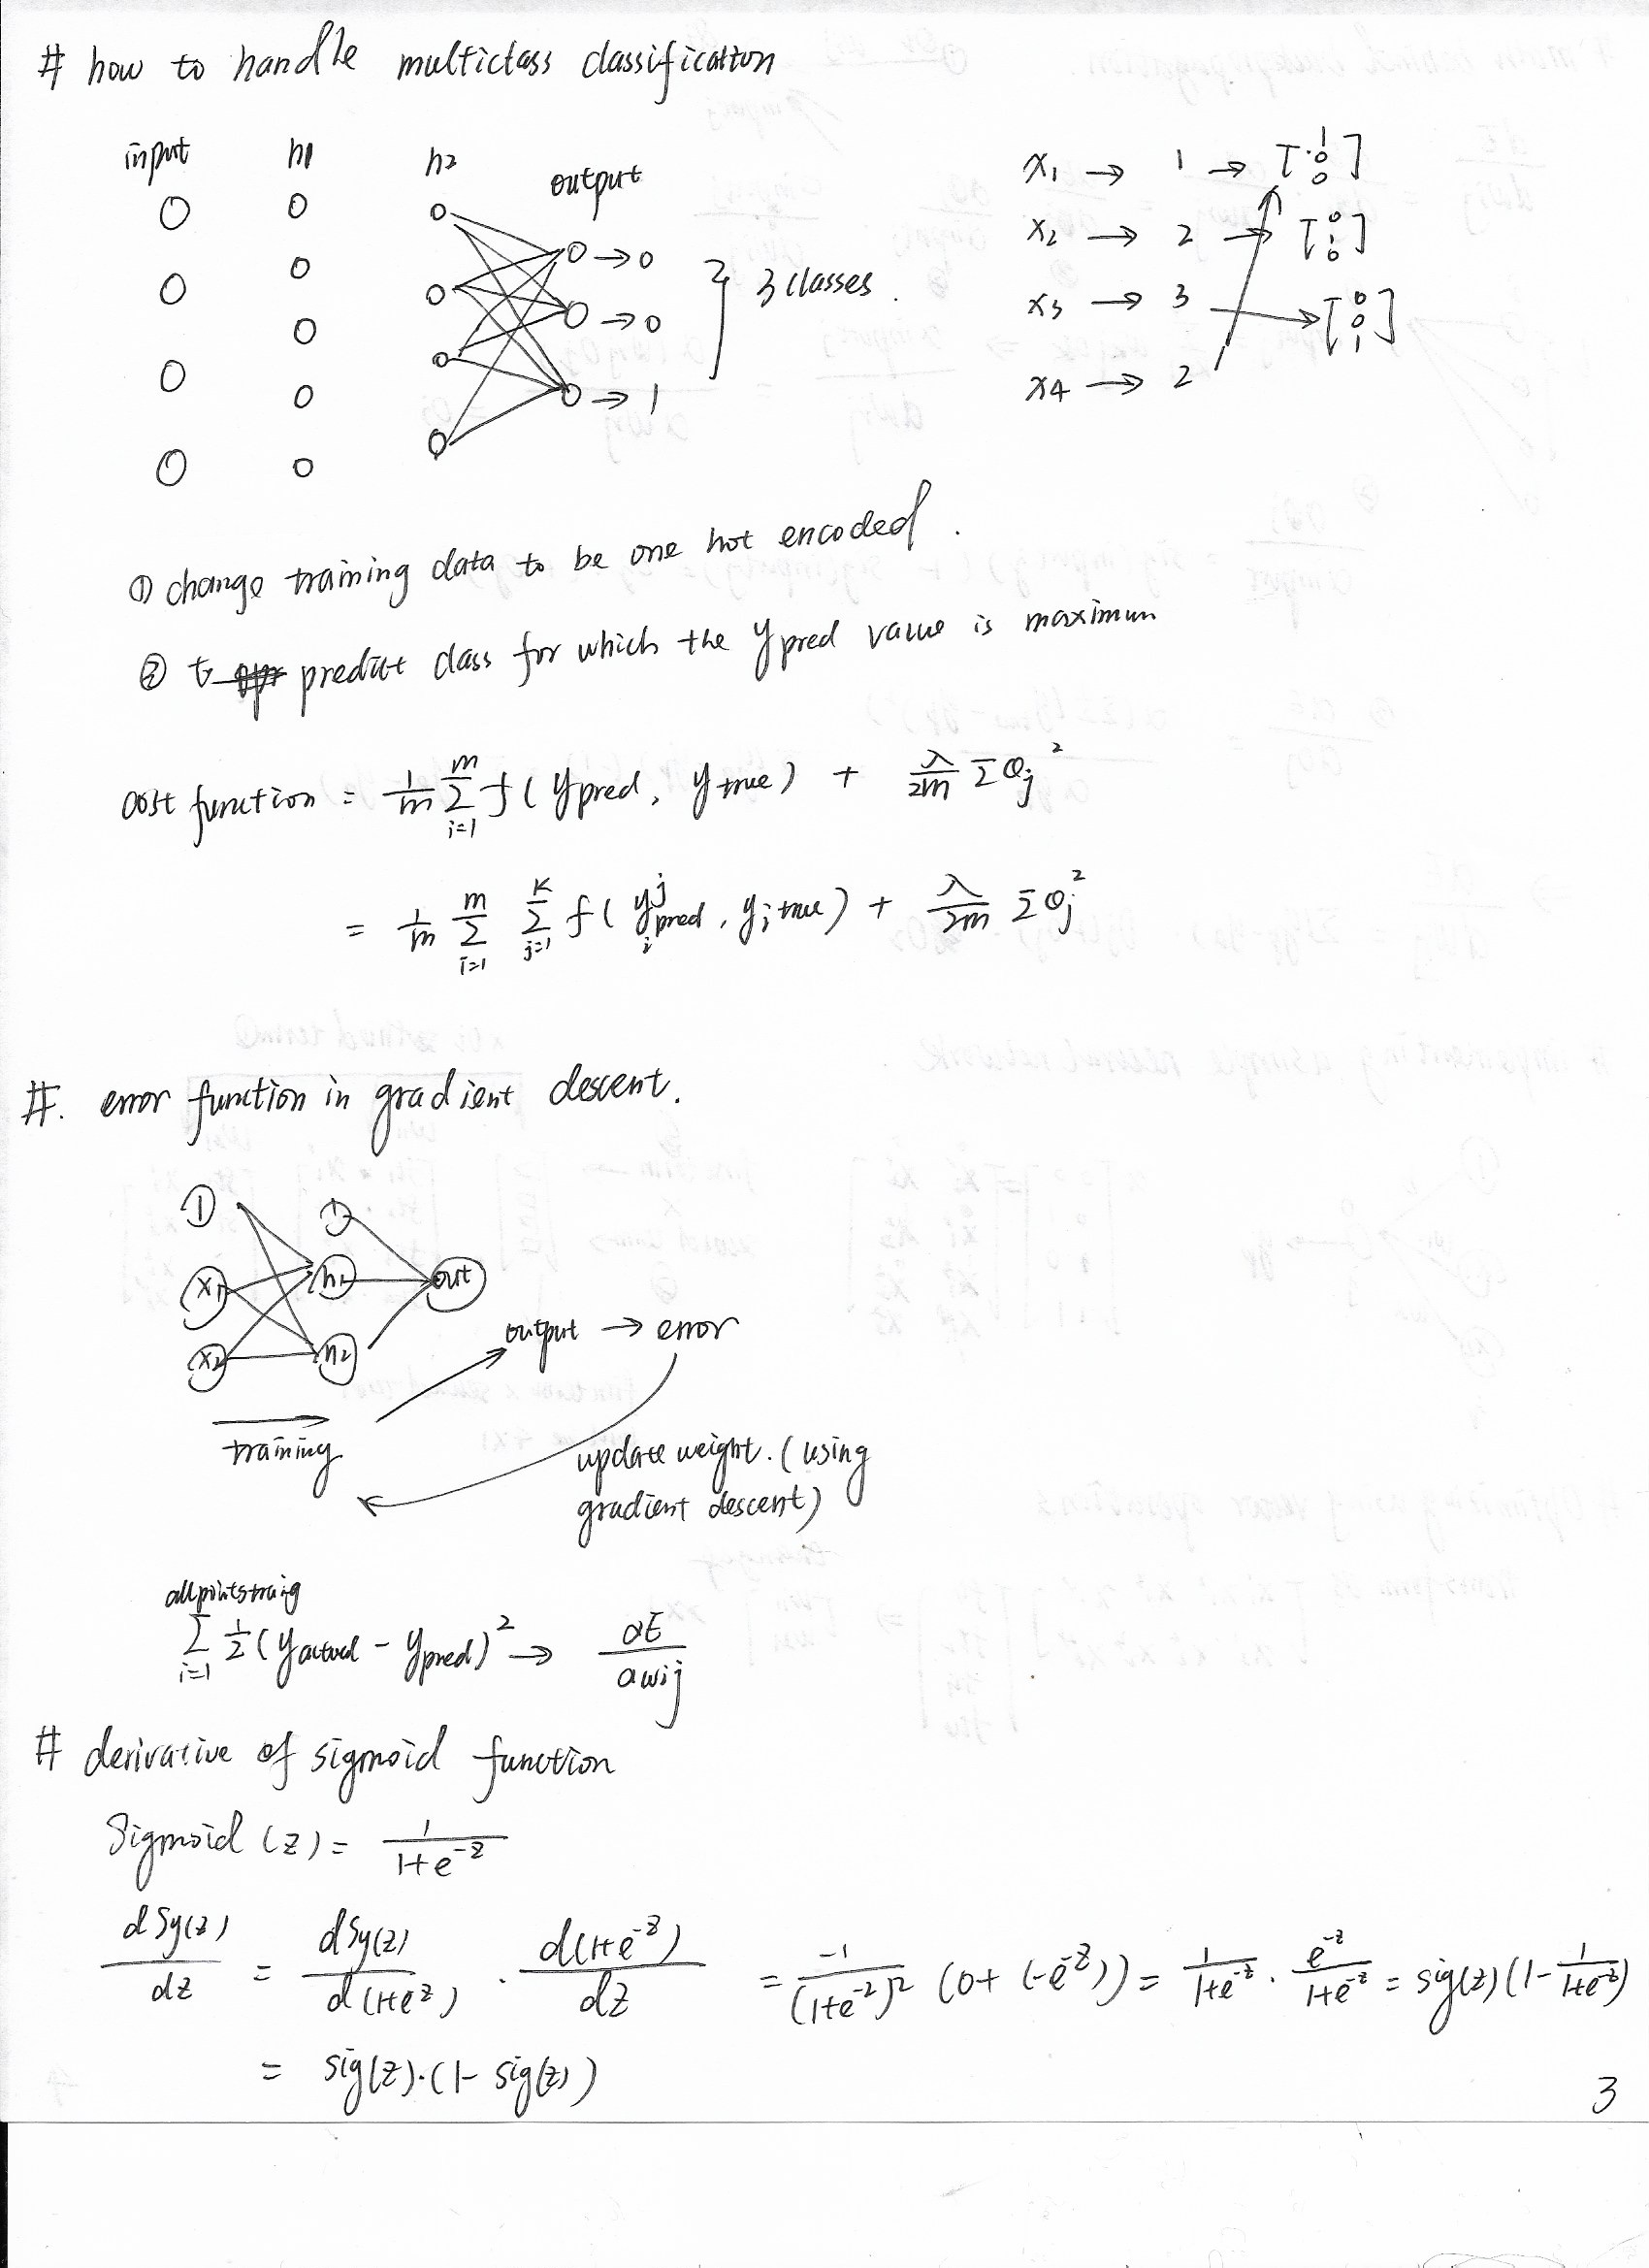 # how to handle multiclass classification
input h1 h2 output
→ 0
→ 0
→ 1
3 classes.
x1 → 1 → [1 0 0]
x2 → 2 → [0 1 0]
x3 → 3 → [0 0 1]
x4 → 2
① change training data to be one hot encoded.
② predict class for which the ypred value is maximum
cost function = 1/m Σ_{i=1}^{m} f(ypred, ytrue) + λ/2m Σθj²
= 1/m Σ_{i=1}^{m} Σ_{j=1}^{K} f(y_i^j pred, yi true) + λ/2m Σθj²
#. error function in gradient descent.
1 1
x1 h1 out
x2 h2
output → error
training
update weight. (using
gradient descent)
all points
Σ_{i=1} 1/2 (yactual - ypred)² → ∂E/∂wij
# derivative of sigmoid function
Sigmoid (z) = 1/(1+e^-z)
dSg(z)/dz = dSg(z)/d(1+e^z) · d(1+e^-z)/dz = -1/(1+e^-z)² (0+(-e^-z)) = 1/(1+e^-z) · e^-z/(1+e^-z) = sig(z)(1-1/(1+e^-z))
= sig(z)·(1-sig(z))
3